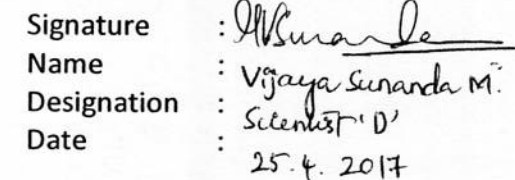 Signature :
Name : Vijaya Sunanda M.
Designation : Scientist 'D'
Date : 25.4.2017